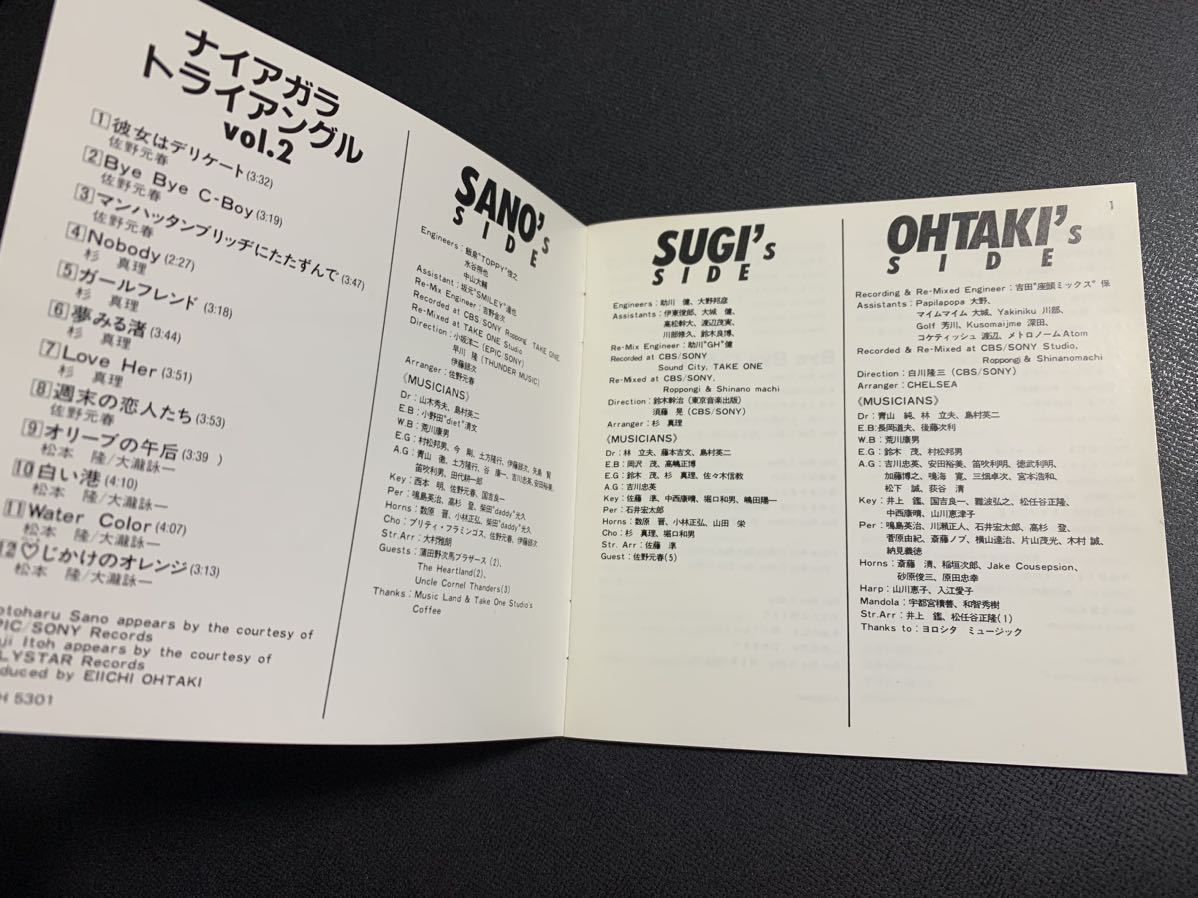 ナイアガラ
トライアングル
vol.2
1 彼女はデリケート(3:32)
佐野元春
2 Bye Bye C-Boy (3:19)
佐野元春
3 マンハッタンブリッヂにたたずんで(3:47)
佐野元春
4 Nobody (2:27)
杉 真理
5 ガールフレンド(3:18)
杉 真理
6 夢みる渚(3:44)
杉 真理
7 Love Her (3:51)
杉 真理
8 週末の恋人たち(3:53)
佐野元春
9 オリーブの午后(3:39 )
松本 隆/大瀧詠一
10 白い港(4:10)
松本 隆/大瀧詠一
11 Water Color (4:07)
松本 隆/大瀧詠一
12 ♡じかけのオレンジ(3:13)
松本 隆/大瀧詠一
otoharu Sano appears by the courtesy of
PIC/SONY Records
ji Itoh appears by the courtesy of
LYSTAR Records
duced by EIICHI OHTAKI
H 5301
SANO's
SIDE
Engineers : 飯泉"TOPPY"俊之
水谷照也
中山大輔
Assistant : 坂元"SMILEY"達也
Re-Mix Engineer : 吉野金次
Recorded at CBS/SONY Roppong TAKE ONE
Re-Mixed at TAKE ONE Studio
Direction : 小坂洋二(EPIC SONY)
早川 隆(THUNDER MUSIC)
伊藤銀次
Arranger : 佐野元春
《MUSICIANS》
Dr : 山木秀夫、島村英二
E.B : 小野田"diet"清文
W.B : 荒川康男
E.G : 村松邦男、今 剛、土方隆行、伊藤銀次、矢島 賢
A.G : 青山 徹、土方隆行、谷 康一、吉川忠英、安田裕美、
笛吹利男、田代耕一郎
Key : 西本 明、佐野元春、国吉良一
Per : 鳴島英治、高杉 登、柴田"daddy"光久
Horns : 数原 晋、小林正弘、柴田"daddy"光久
Cho : プリティ・フラミンゴス、佐野元春、伊藤銀次
Str.Arr : 大村雅朗
Guests : 蒲田野次馬ブラザース(2)、
The Heartland(2)、
Uncle Cornel Thanders(3)
Thanks : Music Land & Take One Studio's
Coffee
SUGI's
SIDE
Engineers : 助川 健、大野邦彦
Assistants : 伊東俊郎、大城 健、
高松幹大、渡辺茂実、
川部修久、鈴木良博、
Re-Mix Engineer : 助川"GH"健
Recorded at CBS/SONY
Sound City, TAKE ONE
Re-Mixed at CBS/SONY,
Roppongi & Shinano machi
Direction : 鈴木幹治(東京音楽出版)
須藤 晃(CBS/SONY)
Arranger : 杉 真理
《MUSICIANS》
Dr : 林 立夫、藤本吉文、島村英二
E.B : 岡沢 茂、高嶋正博
E.G : 鈴木 茂、杉 真理、佐々木信教
A.G : 吉川忠英
Key : 佐藤 準、中西康晴、堀口和男、嶋田陽一
Per : 石井宏太郎
Horns : 数原 晋、小林正弘、山田 栄
Cho : 杉 真理、堀口和男
Str. Arr : 佐藤 準
Guest : 佐野元春(5)
1
OHTAKI's
SIDE
Recording & Re-Mixed Engineer : 吉田"座頭ミックス"保
Assistants : Papilapopa 大野、
マイムマイム 大城、Yakiniku 川部、
Golf 芳川、Kusomaijme 深田、
コケティッシュ 渡辺、メトロノームAtom
Recorded & Re-Mixed at CBS/SONY Studio,
Roppongi & Shinanomachi
Direction : 白川隆三(CBS/SONY)
Arranger : CHELSEA
《MUSICIANS》
Dr : 青山 純、林 立夫、島村英二
E.B : 長岡道夫、後藤次利
W.B : 荒川康男
E.G : 鈴木 茂、村松邦男
A.G : 吉川忠英、安田裕美、笛吹利明、徳武利明、
加藤博之、鳴海 寛、三畑卓次、宮本浩和、
松下 誠、荻谷 清
Key : 井上 鑑、国吉良一、難波弘之、松任谷正隆、
中西康晴、山川恵津子
Per : 鳴島英治、川瀬正人、石井宏太郎、高杉 登、
菅原由紀、斎藤ノブ、横山達治、片山茂光、木村 誠、
納見義徳
Horns : 斎藤 清、稲垣次郎、Jake Cousepsion、
砂原俊三、原田忠幸
Harp : 山川恵子、入江愛子
Mandola : 宇都宮積善、和智秀樹
Str.Arr : 井上 鑑、松任谷正隆(1)
Thanks to : ヨロシタ ミュージック